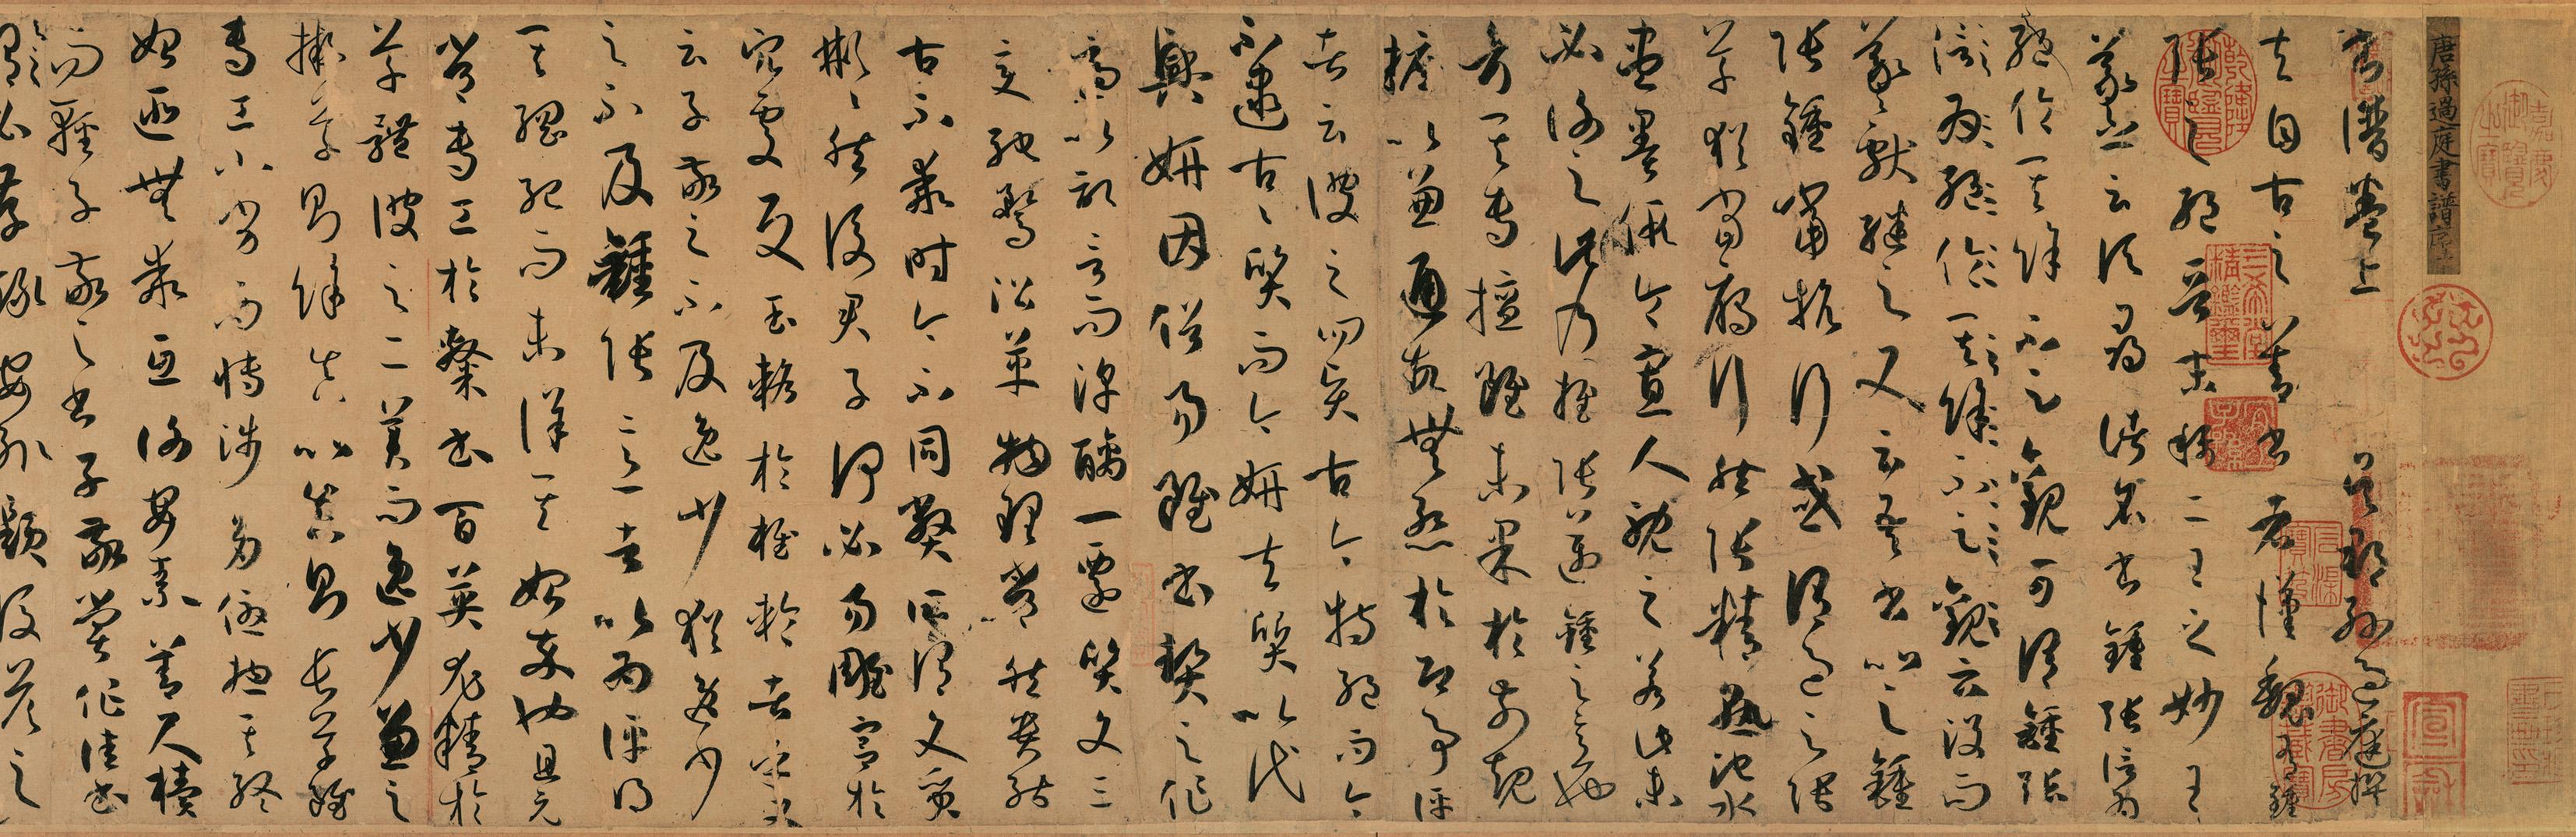 嘉慶御覽之寶
唐孫過庭書譜序上
宣龢
乾隆御覽之寶
三希堂精鑑璽
宜子孫
御書房鑑藏寶
書譜卷上 吳郡孫過庭撰
夫自古之善書者漢魏有鍾
張之絕晉末稱二王之妙王
羲之云頃尋諸名書鍾張信為
絕倫其餘不足觀可謂鍾張
信為絕倫其餘不足觀云沒而
羲獻繼之又云吾書比之鍾
張鍾當抗行或謂過之張
草猶當鴈行然張精熟池水
盡墨假令寡人耽之若此未
必謝之此乃推張邁鍾之意也
考其專擅雖未果於前規
摭以兼通故無慚於即事評
者云彼之四賢古今特絕而今
不逮古古質而今妍夫質以代
興妍因俗易雖書契之作
適以記言而淳醨一遷質文三
變馳騖沿革物理常然貴能
古不乖時今不同弊所謂文質
彬彬然後君子何必易雕宮於
穴處反玉輅於椎輪者乎又
云子敬之不及逸少猶逸少
之不及鍾張意者以為評得
其綱紀而未詳其始卒也且元
常專工於隸書百英尤精於
草體彼之二美而逸少兼之
擬草則餘真比真則長草雖
專工小劣而博涉多優總其終
始匪無乖互謝安素善尺牘
而輕子敬之書子敬嘗作佳書
謂必存錄安輒題後答之